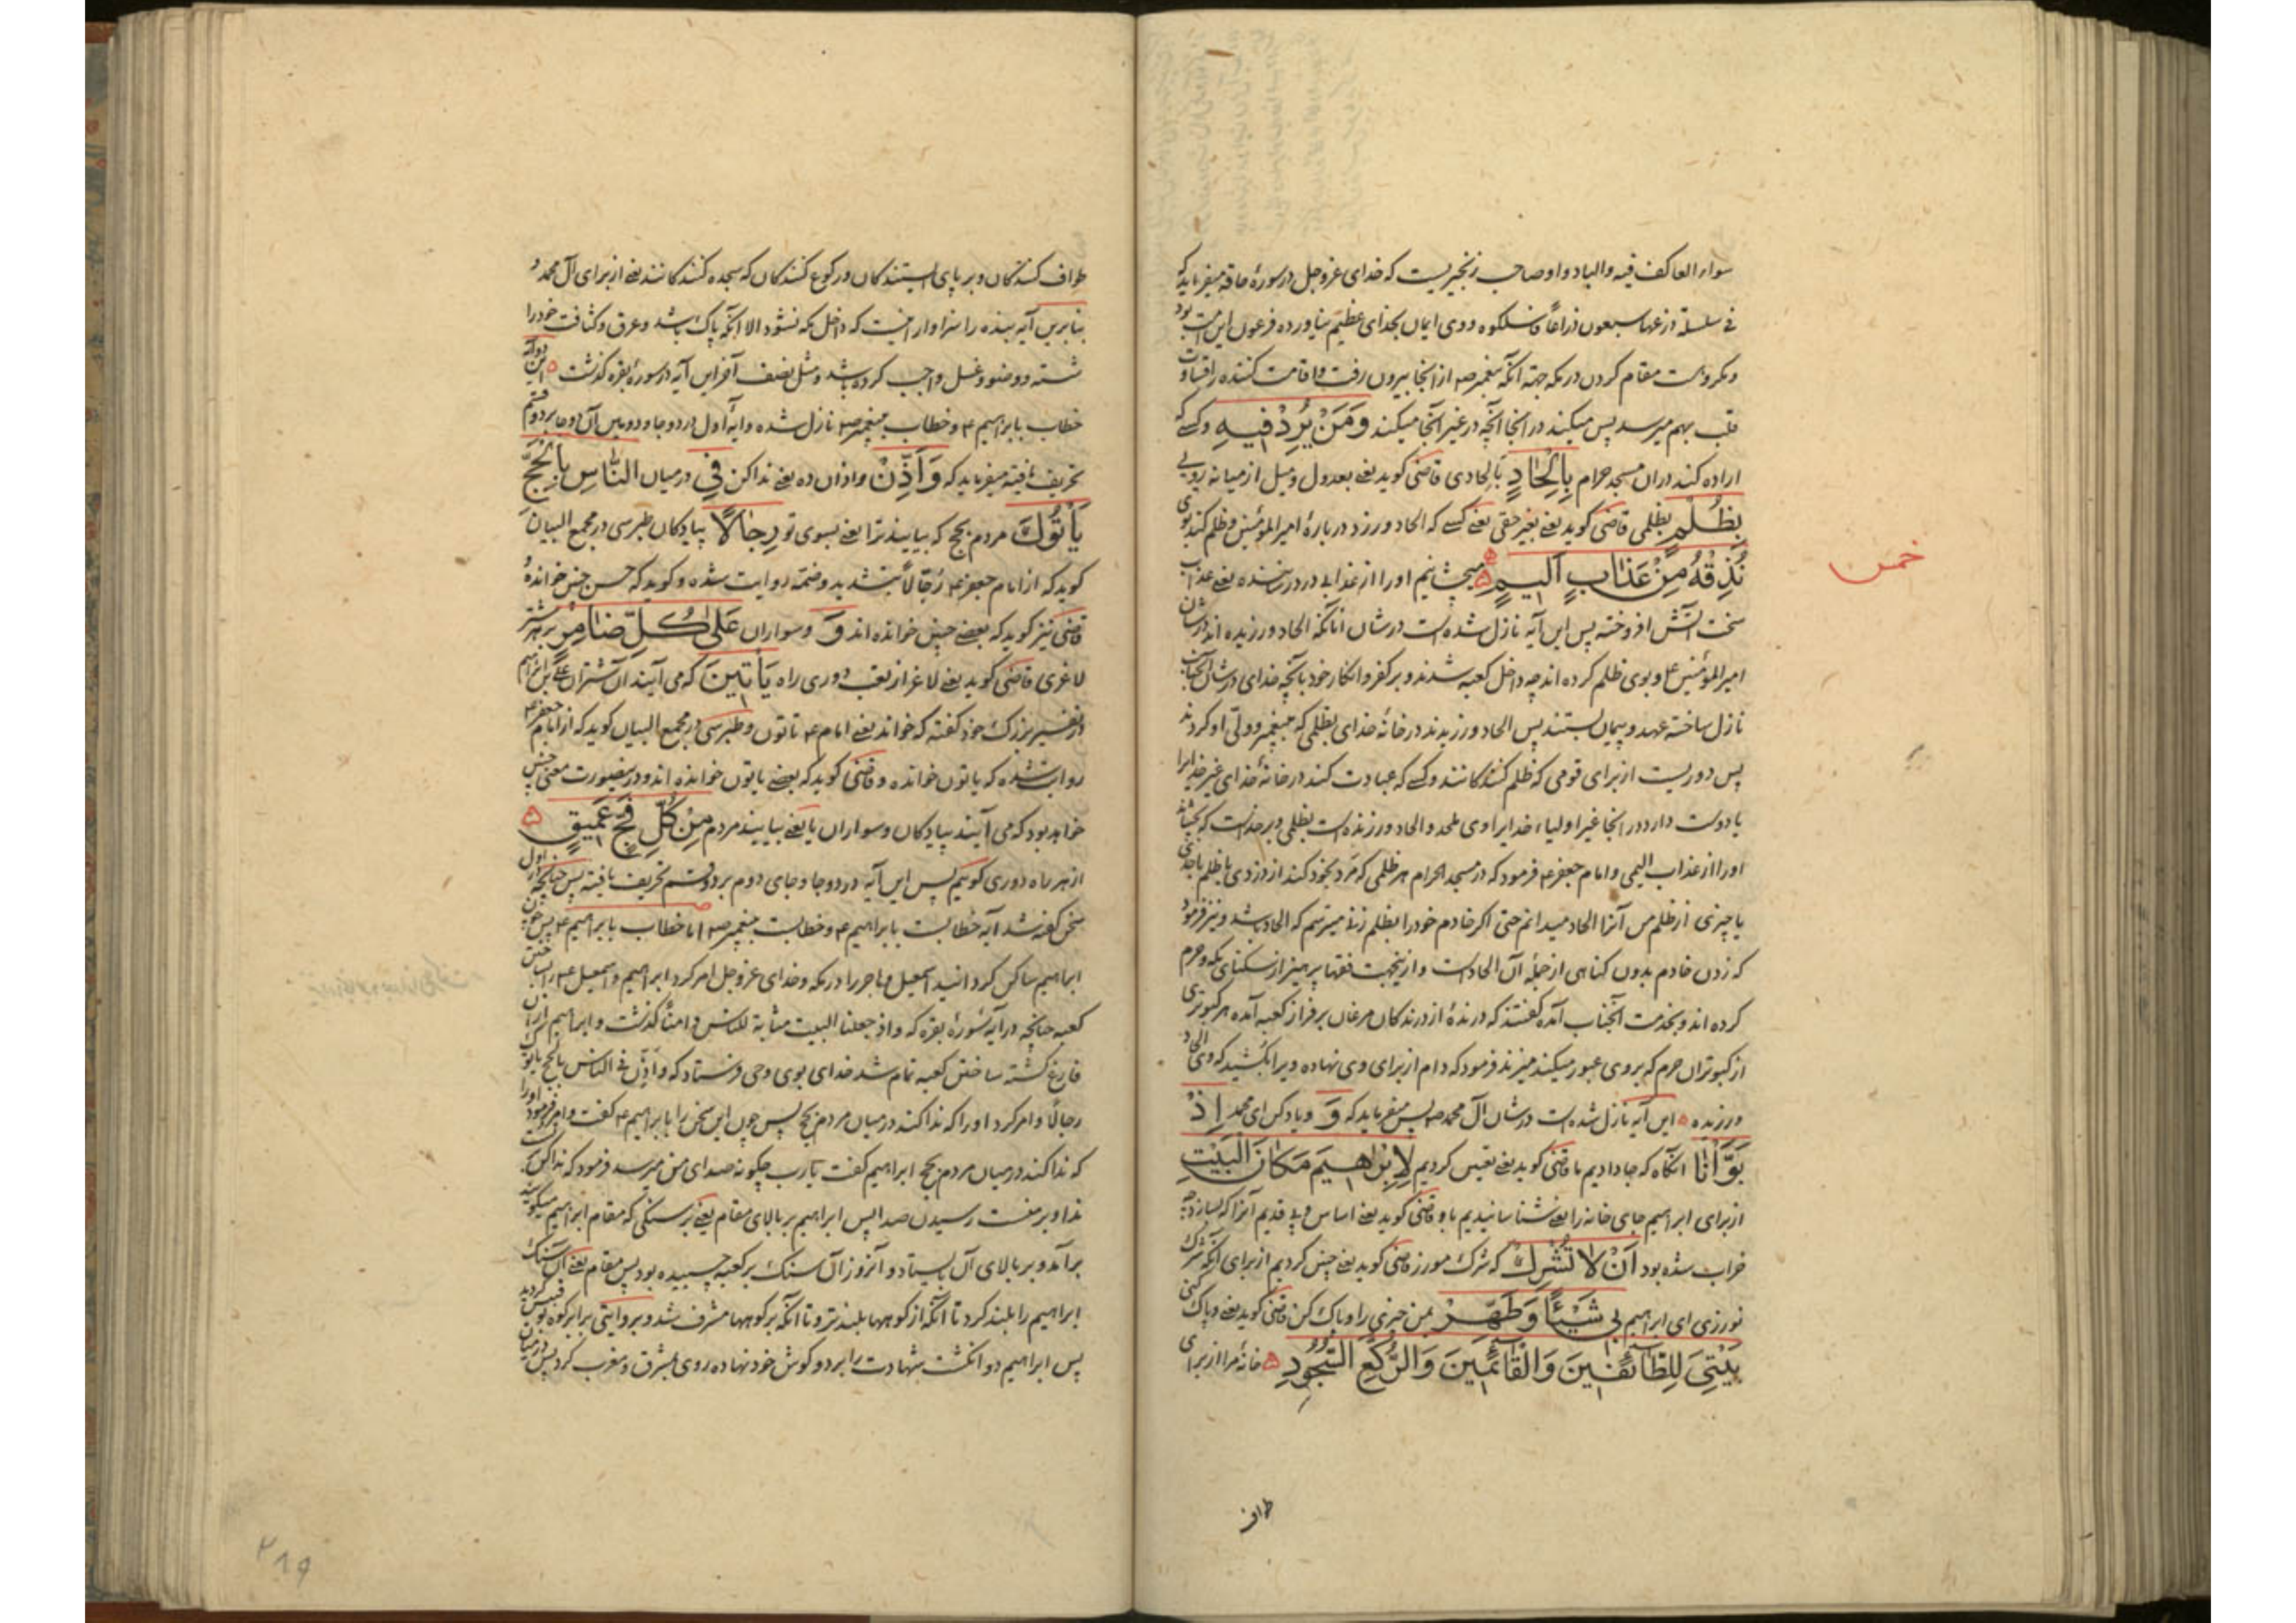 سواء العاکف فیه والباد و او صاحب زنجیریست که خدای عزوجل در سورهٔ حاقه میفرماید که
فی سلسلة ذرعها سبعون ذراعاً فاسلکوه و وی ایمان بخدای عظیم نیاورده فرعون این امت بود
و مکروهست مقام کردن در مکه جهة آنکه پیغمبر ص از آنجا بیرون رفت و اقامت کننده را قساوت
قلب بهم میرسد پس میکند در آنجا آنچه در غیر آنجا میکند وَمَنْ يُرِدْ فِيهِ و کسی که
اراده کند در آن مسجد حرام بِإِلْحَادٍ بالحادی قاضی کوید یعنی بعدول و میل از میانه روی
بِظُلْمٍ بظلمی قاضی کوید یعنی بغیر حقی یعنی کسی که الحاد ورزد در بارهٔ امیر المؤمنین و ظلم کند بوی
نُذِقْهُ مِنْ عَذَابٍ أَلِيمٍ میچشانیم او را از عذابی درد رساننده یعنی عذاب
خمس
سخت آتش افروخته پس این آیه نازل شده است در شان آنانکه الحاد ورزیده اند در شان
امیر المؤمنین ع و بوی ظلم کرده اند چه داخل کعبه شدند و بر کفر و انکار خود بآنچه خدای در شان آنجناب
نازل ساخته عهد و پیمان بستند پس الحاد ورزیدند در خانهٔ خدای بظلمی که بپیغمبر و ولی او کردند
پس دوریست از برای قومی که ظلم کنندکانند و کسی که عبادت کند در خانهٔ خدای غیر خدایرا
یا دوست دارد در آنجا غیر اولیاء خدایرا وی ملحد و الحاد ورزنده است بظلمی و بر خداست که بچشاند
او را از عذاب الیمی و امام جعفر ع فرمود که در مسجد الحرام هر ظلمی که مرد بخود کند از دزدی یا ظلم باحدی
یا چیزی از ظلم من آنرا الحاد میدانم حتی اکر خادم خود را بظلم زند میترسم که الحاد باشد و نیز فرمود
که زدن خادم بدون کناهی از جملهٔ آن الحاد است و ازینجهت فقها پرهیز از سکنای مکه و حرم
کرده اند و بخدمت آنجناب آمده کفتند که درندهٔ از درندکان مرغان بر فراز کعبه آمده هر کبوتری
از کبوتران حرم که بر وی عبور میکند میزند فرمود که دام از برای وی نهاده ویرا بکشید که وی الحاد
ورزیده این آیه نازل شده است در شان آل محمد ص پس میفرماید که وَ و یاد کن ای محمد إِذْ
بَوَّأْنَا آنکاه که جا دادیم ما قاضی کوید یعنی تعیین کردیم لِإِبْرَاهِيمَ مَكَانَ الْبَيْتِ
از برای ابراهیم جای خانه را یعنی شناسانیدیم باو قاضی کوید یعنی اساس و پی قدیم آنرا که بسازد چه
خراب شده بود أَنْ لَا تُشْرِكْ که شرک مورز قاضی کوید یعنی چنین کردیم از برای آنکه شرک
نورزی ای ابراهیم بِي شَيْئًا وَطَهِّرْ بمن چیزی را و پاک کن قاضی کوید یعنی و پاک کنی
بَيْتِيَ لِلطَّائِفِينَ وَالْقَائِمِينَ وَالرُّكَّعِ السُّجُودِ خانهٔ مرا از برای
طواف
طواف کنندکان و بر پای ایستندکان و رکوع کنندکان که سجده کنندکانند یعنی از برای آل محمد و
بنابرین آیه بنده را سزاوار اینست که داخل مکه نشود الا آنکه پاک باشد و عرق و کثافت خود را
شسته و وضو و غسل واجب کرده باشد و مثل نصف آخر این آیه در سورهٔ بقره کذشت این دو آیه
خطاب بابراهیم ع و خطاب بپیغمبر ص نازل شده و آیهٔ اول در دو جا و دویمین آن دو جا بر دو قسم
تحریف یافته میفرماید که وَأَذِّنْ و اذان ده یعنی ندا کن فِي در میان النَّاسِ بِالْحَجِّ
يَأْتُوكَ مردم بحج که بیایند ترا یعنی بسوی تو رِجَالًا پیادکان طبرسی در مجمع البیان
کوید که از امام جعفر ع رُجّالاً بتشدید و ضمه روایت شده و کوید که حسن چنین خوانده و
قاضی نیز کوید که بعضی چنین خوانده اند وَ و سواران عَلَى كُلِّ ضَامِرٍ بر هر شتر
لاغری قاضی کوید یعنی لاغر از تعب دوری راه يَأْتِينَ که می آیند آن شتران علی بن ابراهیم
در تفسیر بزرک خود کفته که خواند یعنی امام ع یأتون و طبرسی در مجمع البیان کوید که از امام جعفر ع
روایت شده که یأتون خوانده و قاضی کوید که بعضی یأتون خوانده اند و درینصورت معنی چنین
خواهد بود که می آیند پیادکان و سواران یا یعنی بیایند مردم مِنْ كُلِّ فَجٍّ عَمِيقٍ
از هر راه دوری کوییم پس این آیه در دو جا و جای دوم بر دو قسم تحریف یافته پس چنانچه اول
سخن کفته شد آیه خطابست بابراهیم ع و خطابست بپیغمبر ص اما خطاب بابراهیم ع پس چون
ابراهیم ساکن کردانید اسمعیل و هاجر را در مکه و خدای عزوجل امر کرد ابراهیم و اسمعیل ع را بساختن
کعبه چنانچه در آیه سورهٔ بقره که و اذ جعلنا البیت مثابة للناس و امناً کذشت و ابراهیم از آن
فارغ کشته ساختن کعبه تمام شد خدای بوی وحی فرستاد که و أذّن فی الناس بالحج یأتوک
رجالاً و امر کرد او را که ندا کند در میان مردم بحج پس چون این سخن را بابراهیم ع کفت و امر فرمود او را
که ندا کند در میان مردم بحج ابراهیم کفت یارب چکونه صدای من میرسد فرمود که ندا کن
ندا و بر منست رسیدن صدا پس ابراهیم بر بالای مقام یعنی بر سنکی که مقام ابراهیم میکویند
برآمد و بر بالای آن بایستاد و آنروز آن سنک بر کعبه چسبیده بود پس مقام یعنی آن سنک
ابراهیم را بلند کرد تا آنکه از کوهها بلندتر و تا آنکه بر کوهها مشرف شد و بروایتی برابر کوه بوقبیس کردید
پس ابراهیم دو انکشت شهادت را بر دو کوش خود نهاده روی بمشرق و مغرب کرد پس در میان
۲۸۹